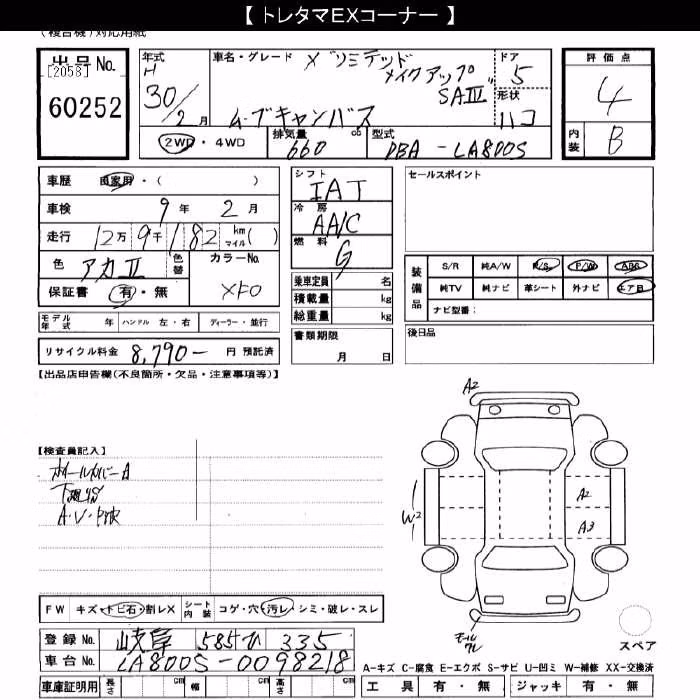 【 トレタマEXコーナー 】
(複合機)対応用紙
出品No.
[2058]
60252
年式
H
30/2月
車名・グレード
X リミテッド
メイクアップ
SAIII
ムーブキャンバス
ドア
5
形状
ハコ
評価点
4
内装
B
2WD・4WD
排気量
660 cc
型式
DBA-LA800S
車歴 自家用・( )
車検 9年 2月
走行 12万 9千 182 km マイル( )
色 アカII 色替
カラーNo.
保証書 有・無
XFO
シフト
IAT
冷房
AAC
燃料
G
乗車定員 名
積載量 kg
総重量 kg
セールスポイント
装備品
S/R 純A/W P/S P/W ABS
純TV 純ナビ 革シート 外ナビ エアB
ナビ型番:
モデル年式 年 ハンドル 左・右 ディーラー・並行
書類期限
月 日
後日品
リサイクル料金 8,790- 円 預託済
【出品店申告欄(不良箇所・欠品・注意事項等)】
A2
【検査員記入】
ホイールカバーA
下廻りS
W2
A2
A3
FW キズ・トビ石・割レX シート内装 コゲ・穴・汚レ・シミ・破レ・スレ
登録No. 岐阜 585 ひ 335
モール
ワレ
スペア
車台No. LA800S-0098218
A-キズ C-腐食 E-エクボ S-サビ U-凹ミ W-補修 XX-交換済
車庫証明用 長さ cm 幅 cm 高さ cm
工具 有・無 ジャッキ 有・無